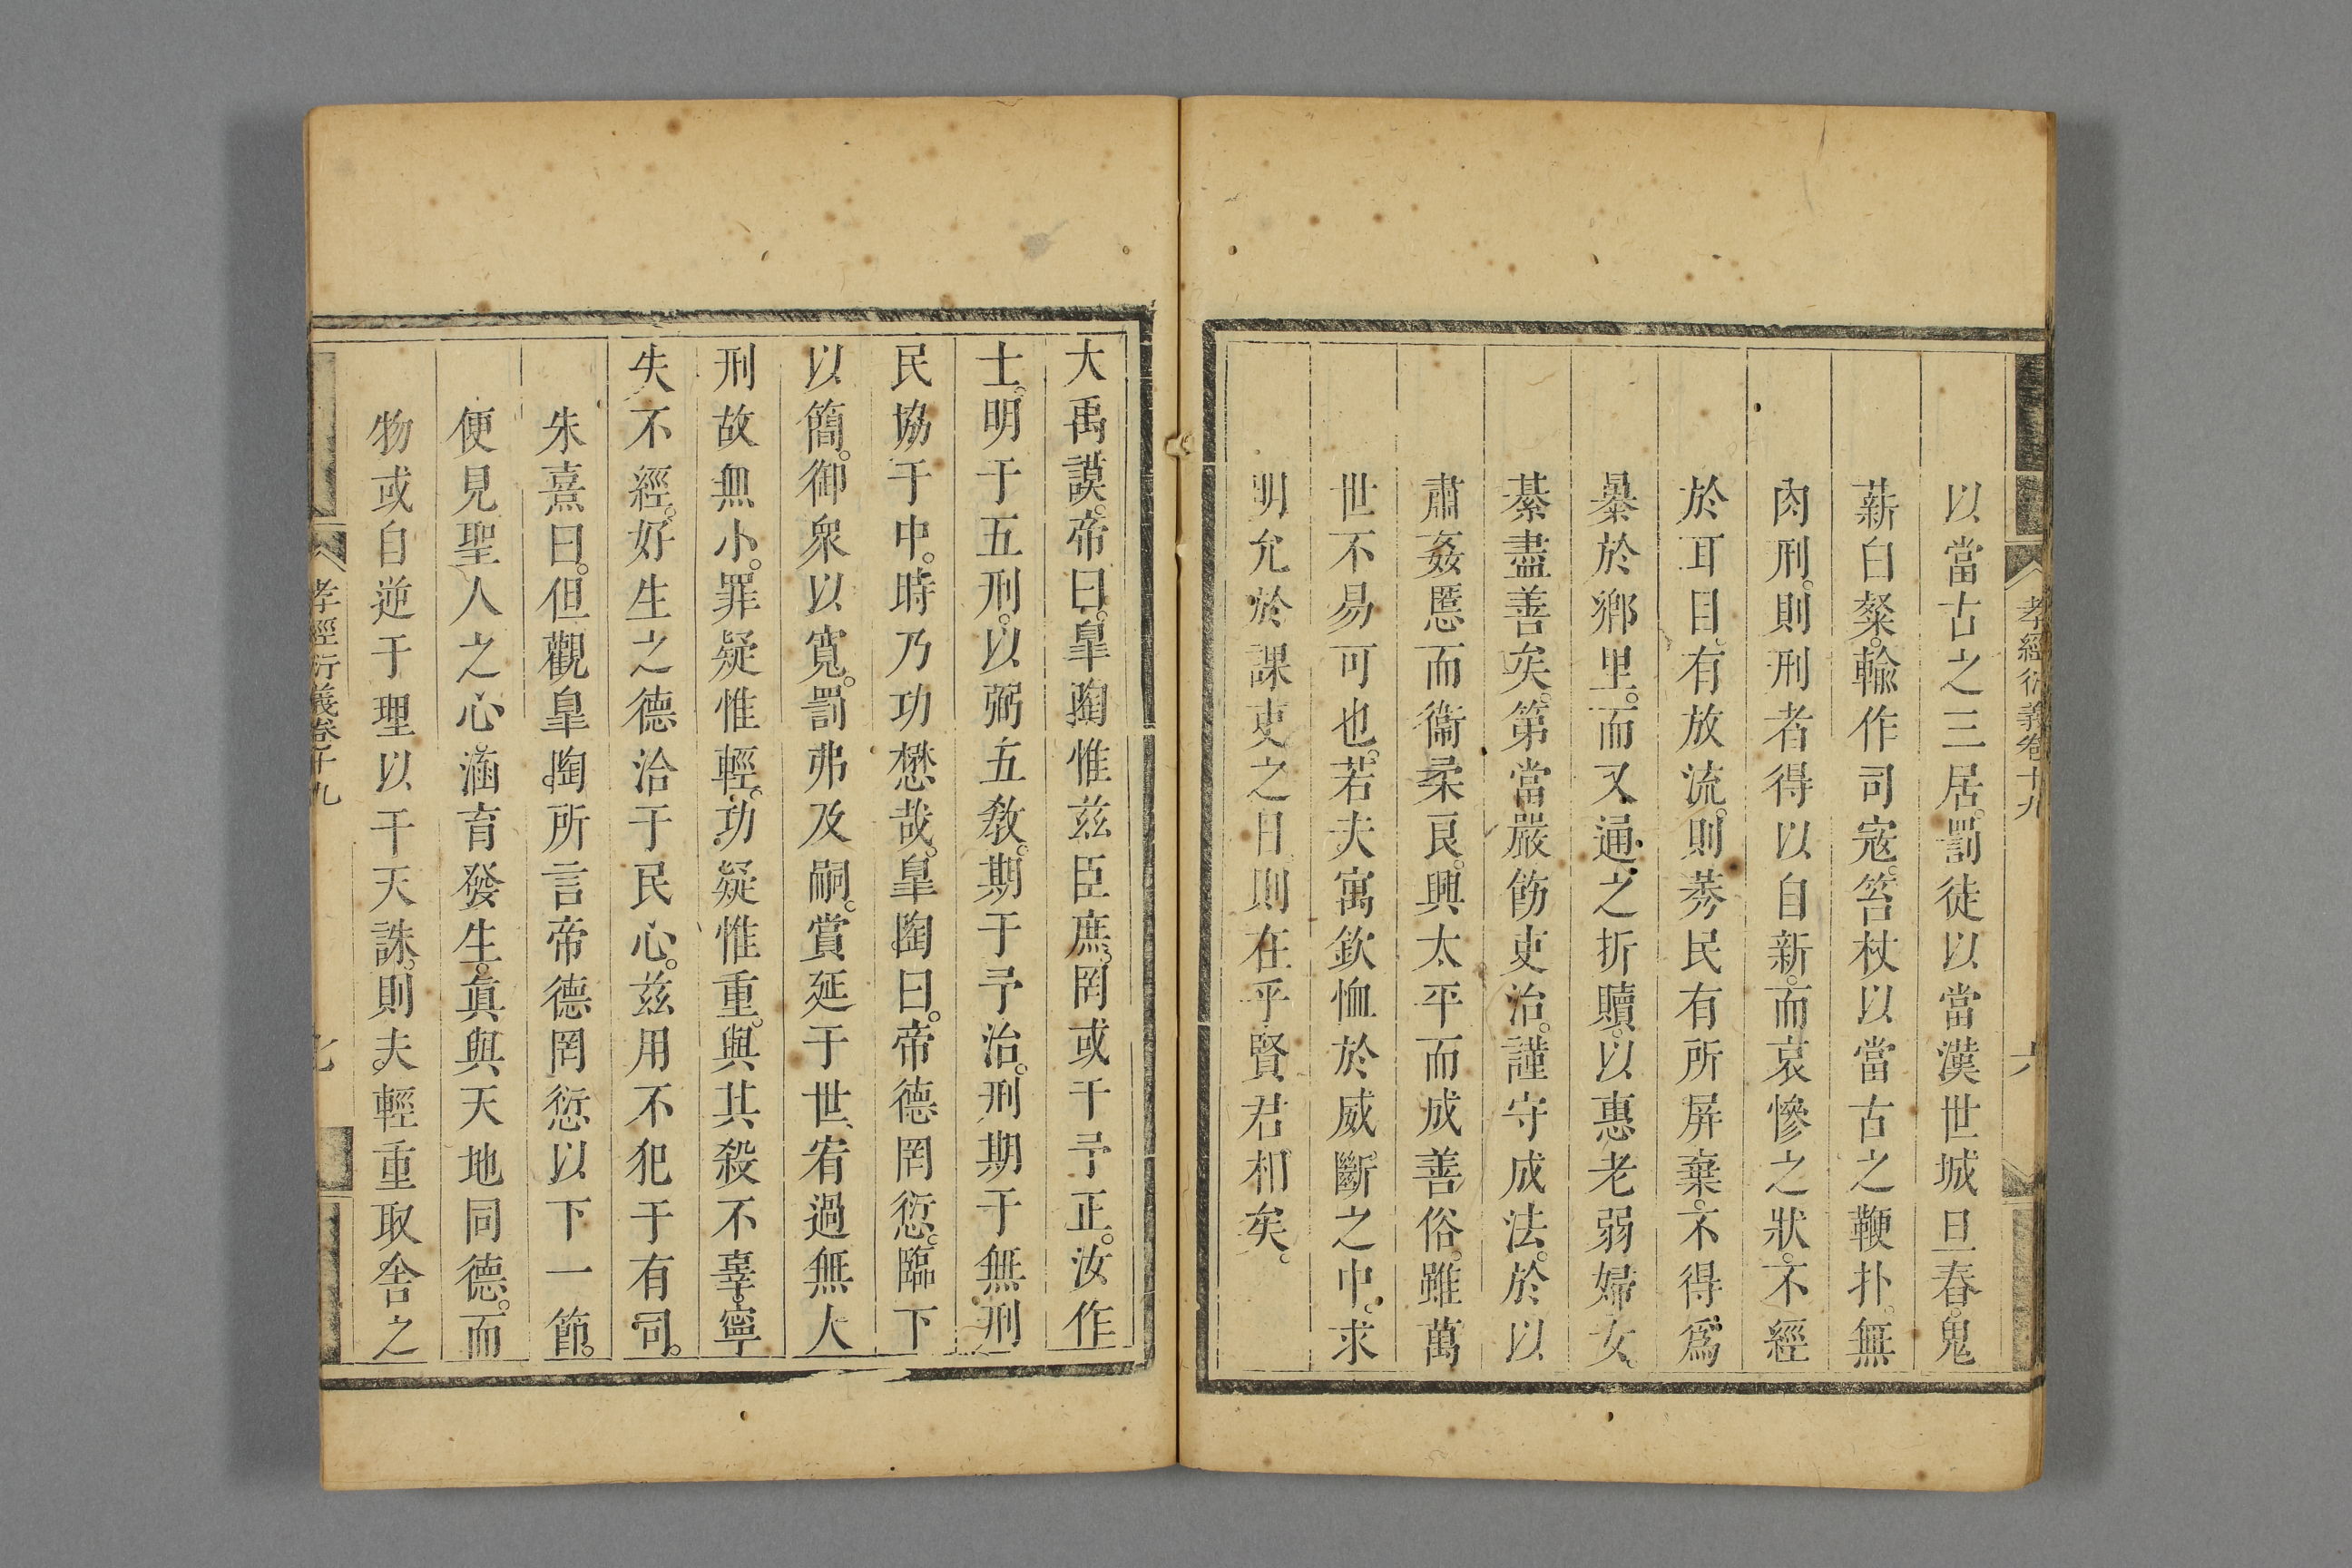 孝經衍義卷十九
六
以當古之三居。罰徒以當漢世城旦舂。鬼
薪白粲。輸作司寇。笞杖以當古之鞭扑。無
肉刑。則刑者得以自新。而哀慘之狀。不經
於耳目。有放流。則莠民有所屏棄。不得爲
暴於鄉里。而又通之折贖。以惠老弱婦女。
綦盡善矣。第當嚴飭吏治。謹守成法。於以
肅姦慝而衞柔良。興太平而成善俗。雖萬
世不易可也。若夫寓欽恤於威斷之中。求
明允於課吏之日。則在乎賢君相矣。
大禹謨。帝曰。臯陶惟兹臣庶。罔或干予正。汝作
士。明于五刑。以弼五敎。期于予治。刑期于無刑
民協于中。時乃功懋哉。臯陶曰。帝德罔愆。臨下
以簡。御衆以寬。罰弗及嗣。賞延于世。宥過無大
刑故無小。罪疑惟輕。功疑惟重。與其殺不辜。寧
失不經。好生之德洽于民心。兹用不犯于有司。
朱熹曰。但觀臯陶所言帝德罔愆以下一節。
便見聖人之心涵育發生。眞與天地同德。而
物或自逆于理以干天誅。則夫輕重取舍之
孝經衍義卷十九
七